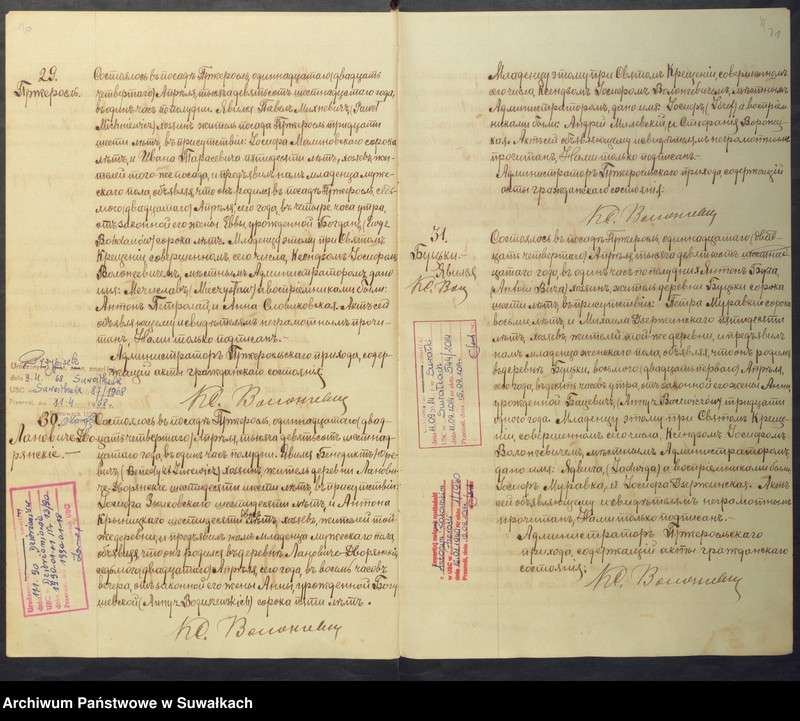 29.
Пржеросль.
Состоялось въ посадѣ Пржеросль, одиннадцатаго (двадцать
четвертаго) Апрѣля, тысяча девятьсотъ шестнадцатаго года,
въ одинъ часъ пополудни. Явился Павелъ Михневичъ (Paweł
Michniewicz) хозяинъ житель посада Пржеросль тридцати
шести лѣтъ, въ присутствіи: Іосифа Малиновскаго сорока
лѣтъ, и Ивана Тарасевича пятидесяти лѣтъ, хозяевъ жи-
телей того же посада, и предъявилъ намъ младенца муже-
скаго пола, объявляя, что онъ родился въ посадѣ Пржеросль,
(двадцатаго) Апрѣля, сего года, въ четыре часа утра,
отъ законной его жены Еввы, урожденной Богданъ, (Ewy z
Bohdanów) сорока лѣтъ. Младенцу этому при Святомъ
Крещеніи совершенномъ сего числа, Ксендзомъ Іосифомъ
Волонкевичемъ, мѣстнымъ Администраторомъ дано
имя: Мечиславъ (Mieczysław) а воспріемниками были:
Антонъ и Анна Словиковская. Актъ сей
объявляющему и свидѣтелямъ неграмотнымъ прочи-
танъ, Нами только подписанъ.-
Администраторъ Пржеросльскаго прихода, содер-
жащій акты гражданскаго состоянія
КС. Волонкевич
30.
Лановиче Дво-
рянскіе.—
Состоялось въ посадѣ Пржеросль, одиннадцатаго (двад-
цать четвертаго) Апрѣля, тысяча девятьсотъ шестнад-
цатаго года, въ одинъ часъ пополудни. Явился Бенедиктъ
(Benedykt) хозяинъ, житель деревниЛанови-
че-Дворянскіе шестидесяти лѣтъ въ присутствіи:
Іосифа шестидесяти лѣтъ, и Антона
шестидесяти лѣтъ, хозяевъ, жителей той
же деревни, и предъявилъ намъ младенца мужескаго пола,
объявляя, что онъ родился въ деревнѣ Лановиче-Дворянскіе,
седьмого (двадцатаго) Апрѣля, сего года, въ восемь часовъ
вечера, отъ законной его жены Анны урожденной
(Anny z) сорока пяти лѣтъ.
КС. Волонкевич
21
Младенцу этому при Святомъ Крещеніи, совершенномъ
сего числа, Ксендзомъ Іосифомъ Волонкевичемъ, мѣстнымъ
Администраторомъ, дано имя: Іосифъ (Józef) а воспріем-
никами были: Андрей Милевскій, и Стефанія
Актъ сей объявляющему и свидѣтелямъ неграмотнымъ
прочитанъ, Нами только подписанъ.-
Администраторъ Пржеросльскаго прихода, содержащій
акты гражданскаго состоянія:
КС. Волонкевич
31.
Буцки.-
КС. Вол
Состоялось въ посадѣ Пржеросль, одиннадцатаго (двад-
цать четвертаго) Апрѣля, тысяча девятьсотъ шестнад-
цатаго года, въ одинъ часъ пополудни. Явился Антонъ
(Antoni) хозяинъ, житель деревни Буцки сорока
шести лѣтъ, въ присутствіи: Петра Муравки сорока
восьми лѣтъ, и Михаила Дзержинскаго пятидесяти
лѣтъ, хозяевъ, жителей той же деревни, и предъявилъ
намъ младенца женскаго пола, объявляя, что онъ родился
въ деревнѣ Буцки, восьмого (двадцать перваго) Апрѣля,
сего года, въ десять часовъ утра, отъ законной его жены Анны,
урожденной (Anny z) тридцати
одного года. Младенцу этому при Святомъ Креще-
ніи, совершенномъ сего числа, Ксендзомъ Іосифомъ
Волонкевичемъ, мѣстнымъ Администраторомъ,
дано имя: Ядвига, (Jadwiga) а воспріемниками были:
Іосифъ Муравка, и Іосифа Дзержинская. Актъ
сей объявляющему и свидѣтелямъ неграмотнымъ
прочитанъ, Нами только подписанъ.-
Администраторъ Пржеросльскаго
прихода, содержащій акты гражданскаго
состоянія:
КС. Волонкевич
Archiwum Państwowe w Suwałkach